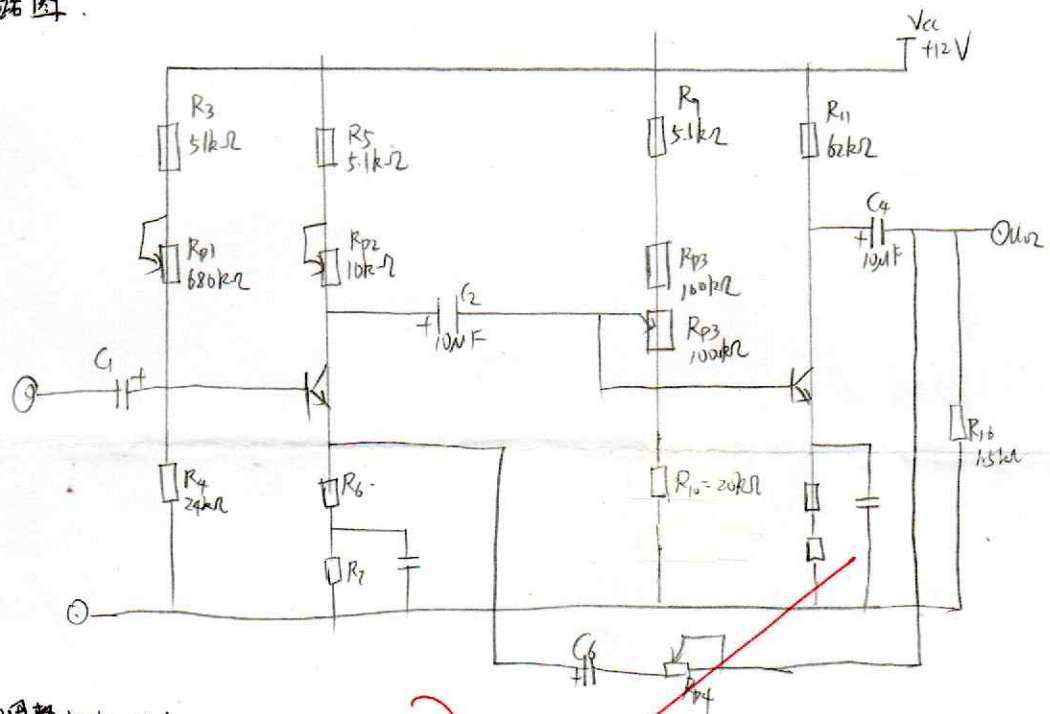 路图.
Vcc
+12V
R3
51kΩ
R5
5.1kΩ
R9
5.1kΩ
R11
62kΩ
Rp1
680kΩ
Rp2
10kΩ
Rp3
100kΩ
Rp3
100kΩ
C4
+
10μF
Uo2
C2
+
10μF
C1
+
R4
24kΩ
R6
R7
R10=20kΩ
R16
1.5kΩ
C6
+
Rp4
调整